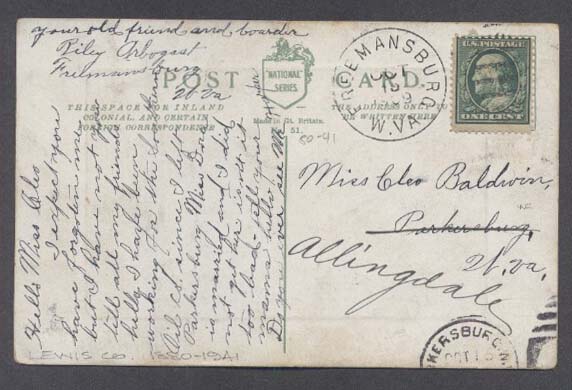 your old friend and boarder
Riley Arbogast
Freemansburg
W. Va
POST CARD.
"NATIONAL"
SERIES
THIS SPACE FOR INLAND
COLONIAL, AND CERTAIN
FOREIGN CORRESPONDENCE
THE ADDRESS ONLY TO
BE WRITTEN HERE
Made in Gt. Britain.
51.
50-41
FREEMANSBURG
OCT
W.VA.
U.S. POSTAGE
ONE CENT
Miss Cleo Baldwin,
Parkersburg,
W. Va.
Allingdale
Hello Miss Cleo
I expect you
have forgoten me
but I have not you
tell all my friends
hello I have been
working for the
Oil Co. since I left
Parkersburg Miss
is married and I did
not get her is not it
too bad tell your
mama hello
Do you ever see
LEWIS CO. 1880-1941
KERSBURG
OCT 1